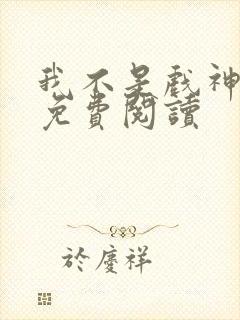 我不是戲神
免費閱讀
於慶祥